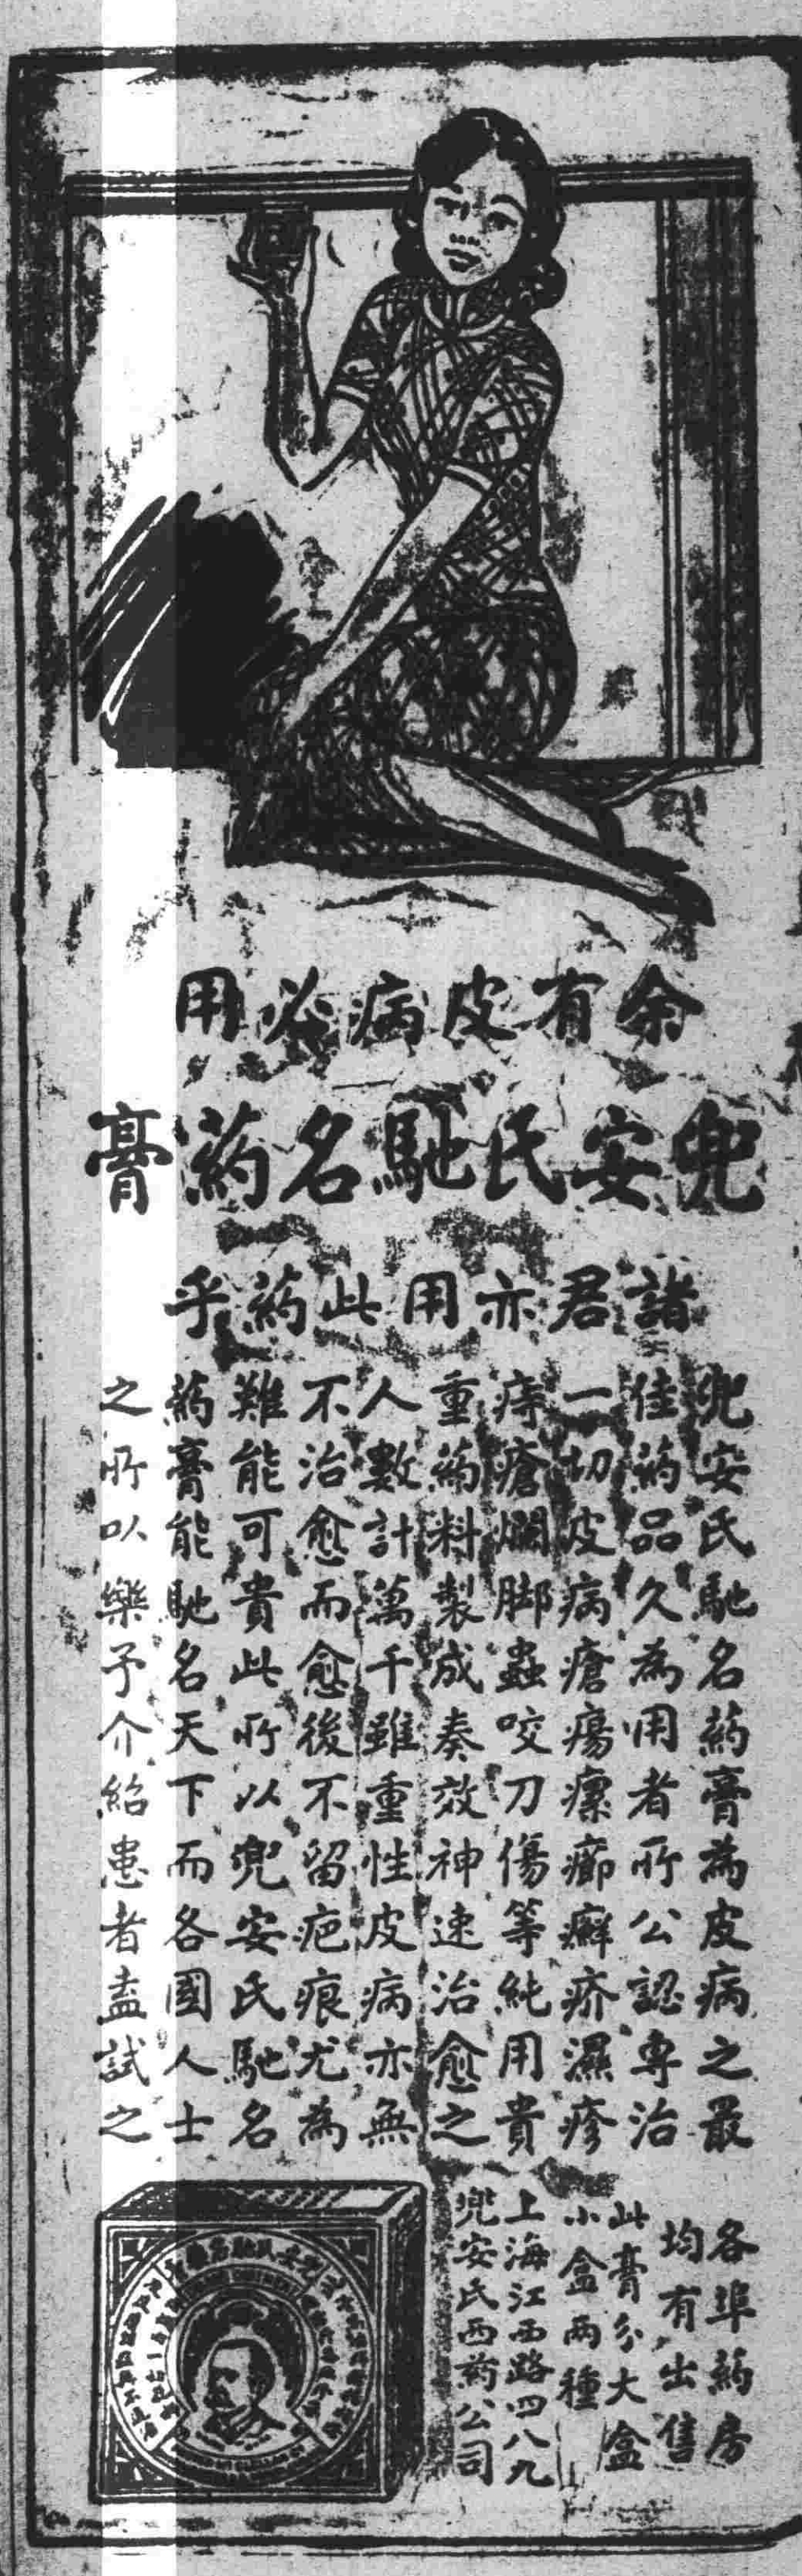 余有皮病必用
兜安氏馳名葯膏
諸君亦用此葯乎
兜安氏馳名葯膏為皮病之最
佳葯品久為用者所公認專治
一切皮病瘡瘍瘰癤癬疥濕疹
痔瘡爛脚蟲咬刀傷等純用貴
重葯料製成奏效神速治愈之
人數計萬千雖重性皮病亦無
不治愈而愈後不留疤痕尤為
難能可貴此所以兜安氏馳名
葯膏能馳名天下而各國人士
之所以樂予介紹患者盍試之
各埠葯房
均有出售
此膏分大盒
小盒兩種
上海江西路四八九
兜安氏西葯公司